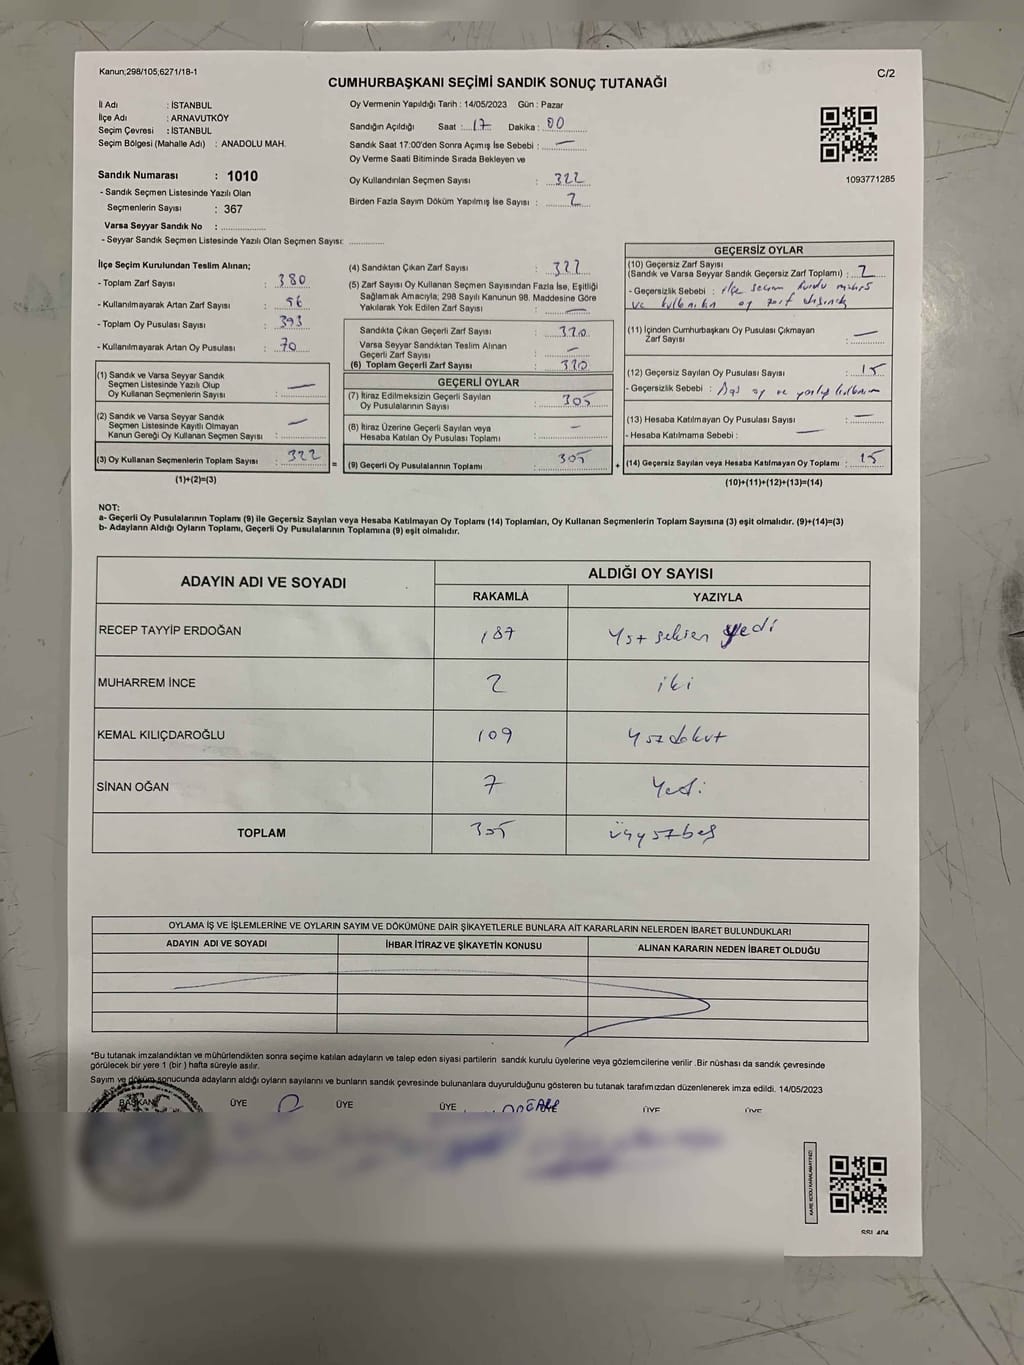 Kanun;298/105;6271/18-1
C/2
CUMHURBAŞKANI SEÇİMİ SANDIK SONUÇ TUTANAĞI
İl Adı : İSTANBUL
İlçe Adı : ARNAVUTKÖY
Seçim Çevresi : İSTANBUL
Seçim Bölgesi (Mahalle Adı) : ANADOLU MAH.
Sandık Numarası : 1010
- Sandık Seçmen Listesinde Yazılı Olan
Seçmenlerin Sayısı : 367
Varsa Seyyar Sandık No :
- Seyyar Sandık Seçmen Listesinde Yazılı Olan Seçmen Sayısı:
Oy Vermenin Yapıldığı Tarih : 14/05/2023 Gün : Pazar
Sandığın Açıldığı Saat : 17 Dakika : 00
Sandık Saat 17:00'den Sonra Açımış İse Sebebi : —
Oy Verme Saati Bitiminde Sırada Bekleyen ve
Oy Kullandırılan Seçmen Sayısı : 322
Birden Fazla Sayım Döküm Yapılmış İse Sayısı : 2
1093771285
İlçe Seçim Kurulundan Teslim Alınan;
- Toplam Zarf Sayısı : 380
- Kullanılmayarak Artan Zarf Sayısı : 56
- Toplam Oy Pusulası Sayısı : 393
- Kullanılmayarak Artan Oy Pusulası : 70
(1) Sandık ve Varsa Seyyar Sandık
Seçmen Listesinde Yazılı Olup
Oy Kullanan Seçmenlerin Sayısı : —
(2) Sandık ve Varsa Seyyar Sandık
Seçmen Listesinde Kayıtlı Olmayan
Kanun Gereği Oy Kullanan Seçmen Sayısı : —
(3) Oy Kullanan Seçmenlerin Toplam Sayısı : 322
(1)+(2)=(3)
(4) Sandıktan Çıkan Zarf Sayısı : 322
(5) Zarf Sayısı Oy Kullanan Seçmen Sayısından Fazla İse, Eşitliği
Sağlamak Amacıyla; 298 Sayılı Kanunun 98. Maddesine Göre
Yakılarak Yok Edilen Zarf Sayısı : —
Sandıkta Çıkan Geçerli Zarf Sayısı : 320
Varsa Seyyar Sandıktan Teslim Alınan
Geçerli Zarf Sayısı : —
(6) Toplam Geçerli Zarf Sayısı : 320
GEÇERLİ OYLAR
(7) İtiraz Edilmeksizin Geçerli Sayılan
Oy Pusulalarının Sayısı : 305
(8) İtiraz Üzerine Geçerli Sayılan veya
Hesaba Katılan Oy Pusulası Toplamı : —
= (9) Geçerli Oy Pusulalarının Toplamı : 305
GEÇERSİZ OYLAR
(10) Geçersiz Zarf Sayısı
(Sandık ve Varsa Seyyar Sandık Geçersiz Zarf Toplamı) : 2
- Geçersizlik Sebebi : ilçe seçim
ve oy zarf
(11) İçinden Cumhurbaşkanı Oy Pusulası Çıkmayan
Zarf Sayısı : —
(12) Geçersiz Sayılan Oy Pusulası Sayısı : 15
- Geçersizlik Sebebi : oy ve
(13) Hesaba Katılmayan Oy Pusulası Sayısı : —
- Hesaba Katılmama Sebebi : —
+ (14) Geçersiz Sayılan veya Hesaba Katılmayan Oy Toplamı : 15
(10)+(11)+(12)+(13)=(14)
NOT:
a- Geçerli Oy Pusulalarının Toplamı (9) ile Geçersiz Sayılan veya Hesaba Katılmayan Oy Toplamı (14) Toplamları, Oy Kullanan Seçmenlerin Toplam Sayısına (3) eşit olmalıdır. (9)+(14)=(3)
b- Adayların Aldığı Oyların Toplamı, Geçerli Oy Pusulalarının Toplamına (9) eşit olmalıdır.
ADAYIN ADI VE SOYADI ALDIĞI OY SAYISI
RAKAMLA YAZIYLA
RECEP TAYYİP ERDOĞAN 187 Yüz seksen yedi
MUHARREM İNCE 2 iki
KEMAL KILIÇDAROĞLU 109 Yüzdokuz
SİNAN OĞAN 7 Yedi
TOPLAM 305 üçyüzbeş
OYLAMA İŞ VE İŞLEMLERİNE VE OYLARIN SAYIM VE DÖKÜMÜNE DAİR ŞİKAYETLERLE BUNLARA AİT KARARLARIN NELERDEN İBARET BULUNDUKLARI
ADAYIN ADI VE SOYADI İHBAR İTİRAZ VE ŞİKAYETİN KONUSU ALINAN KARARIN NEDEN İBARET OLDUĞU
*Bu tutanak imzalandıktan ve mühürlendikten sonra seçime katılan adayların ve talep eden siyasi partilerin sandık kurulu üyelerine veya gözlemcilerine verilir .Bir nüshası da sandık çevresinde
görülecek bir yere 1 (bir ) hafta süreyle asılır.
Sayım ve döküm sonucunda adayların aldığı oyların sayılarını ve bunların sandık çevresinde bulunanlara duyurulduğunu gösteren bu tutanak tarafımızdan düzenlenerek imza edildi. 14/05/2023
BAŞKAN ÜYE ÜYE ÜYE ÜYE ÜYE